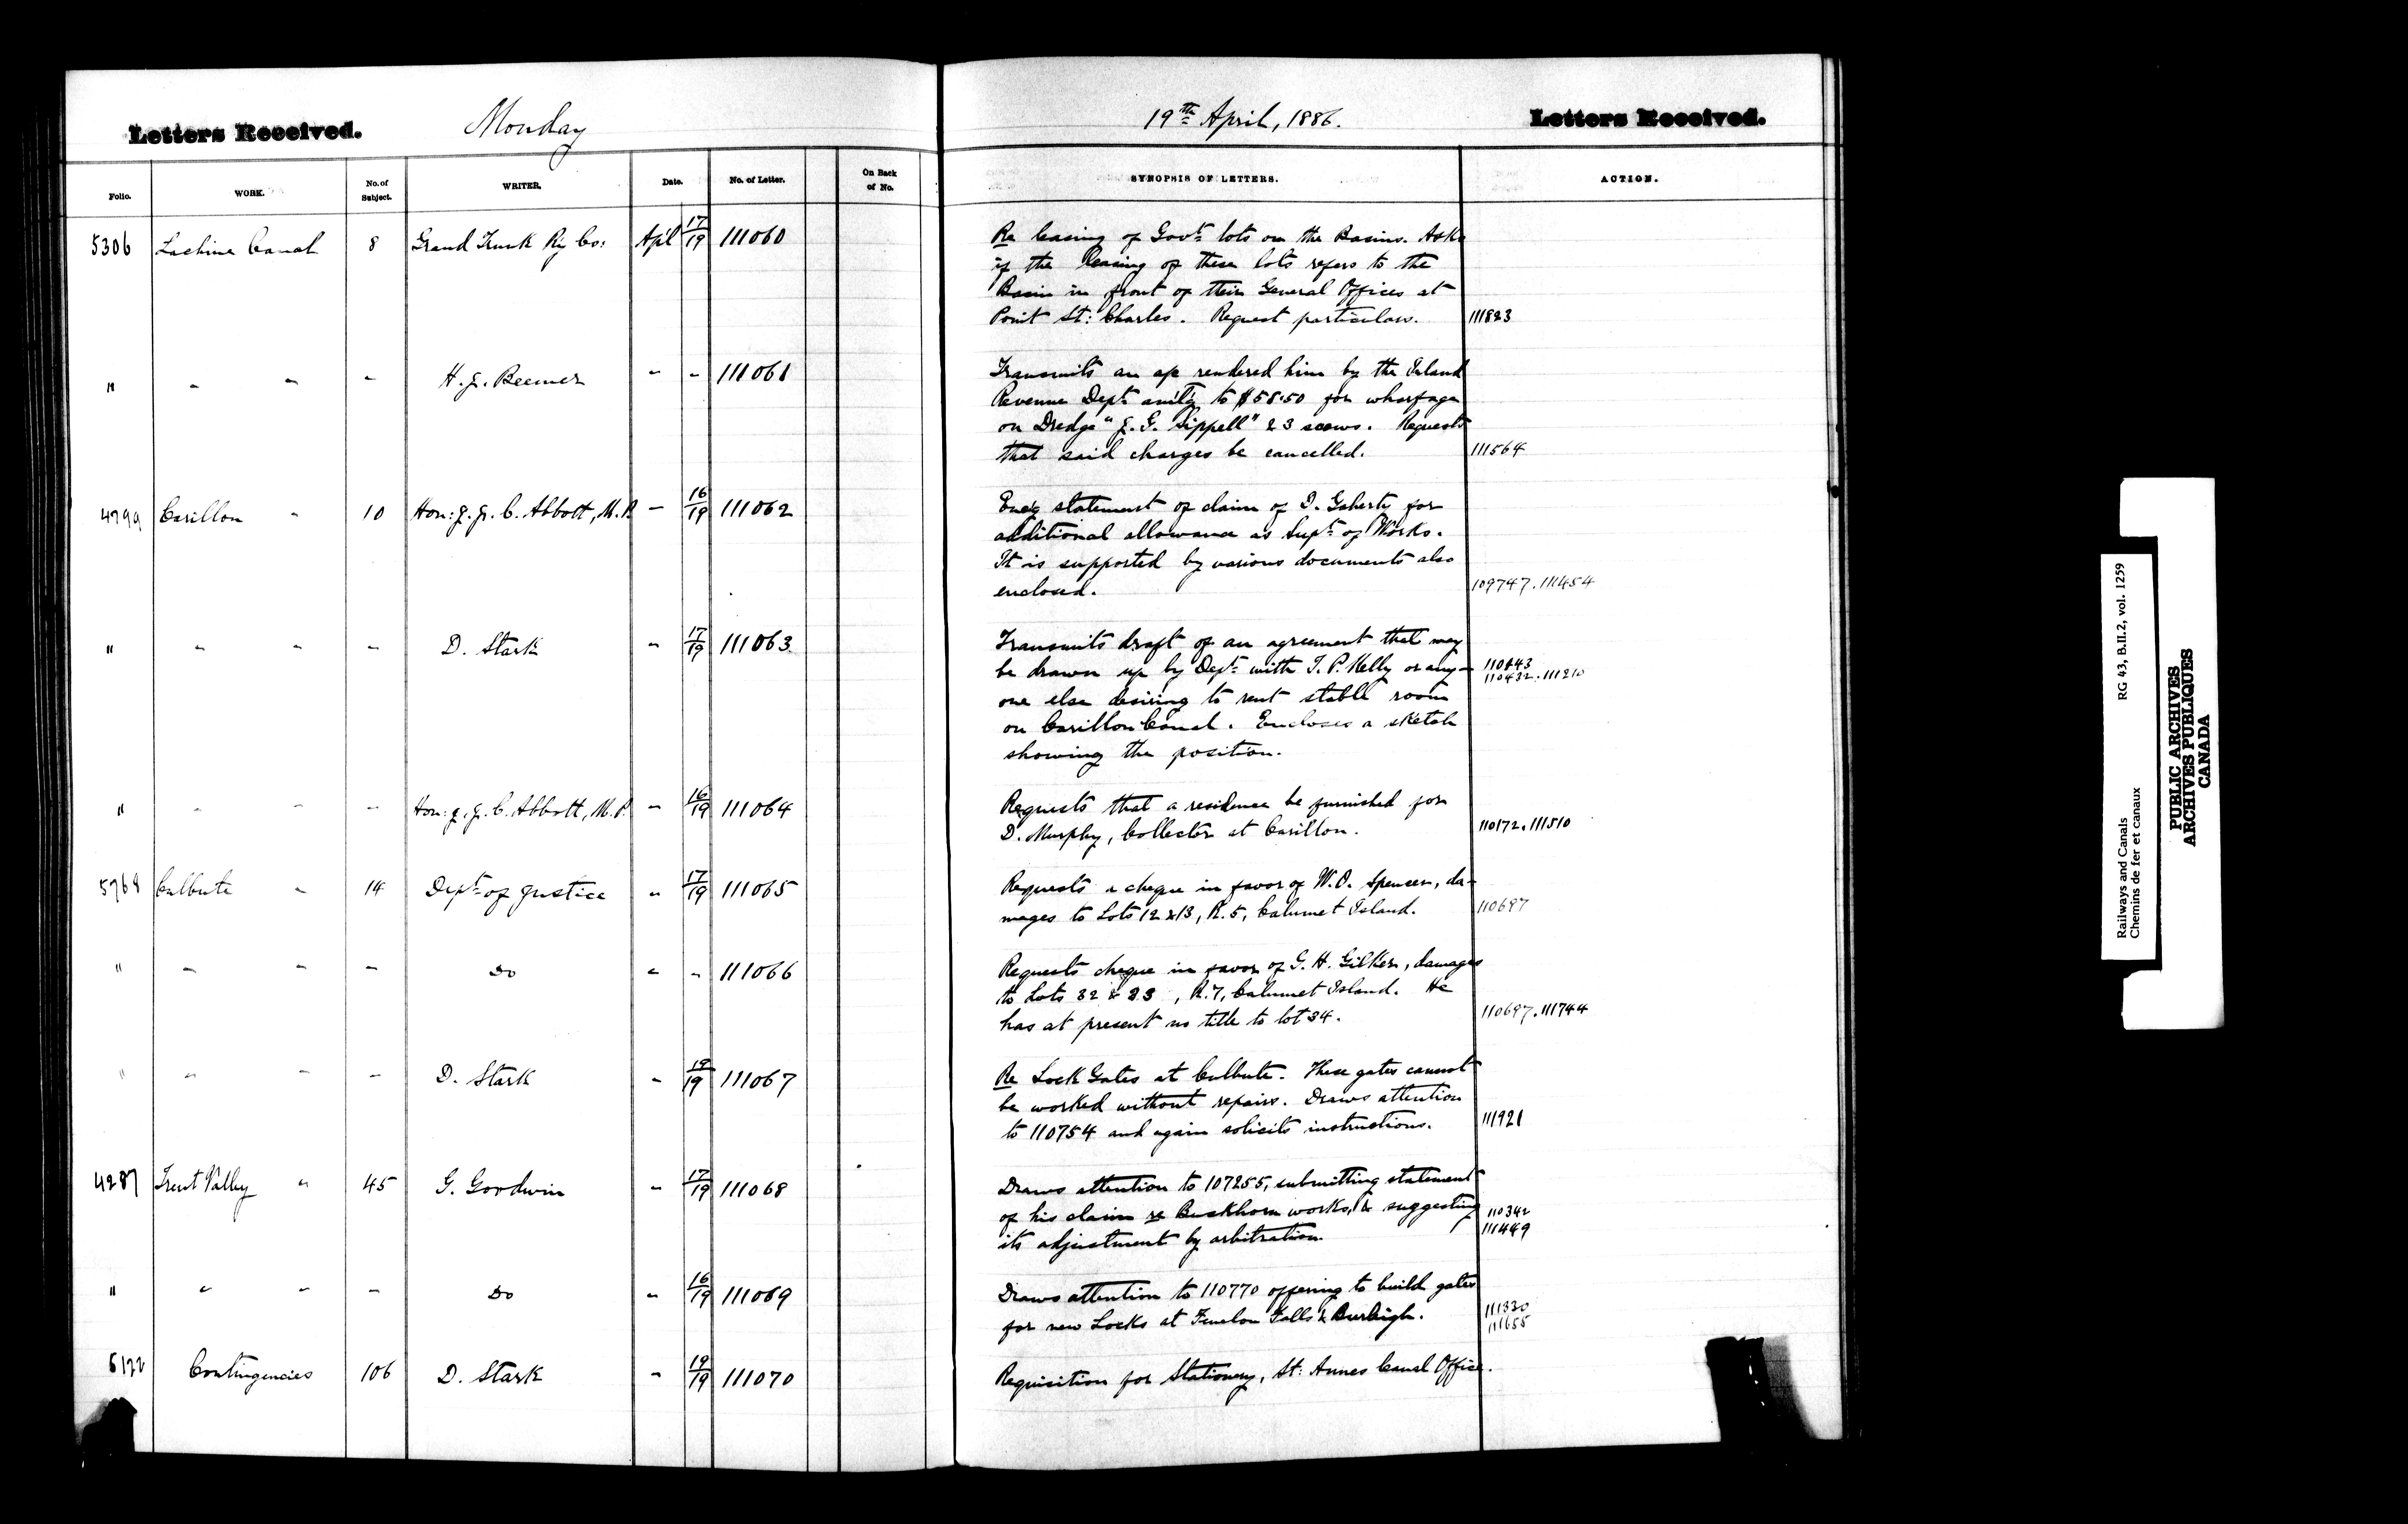 Letters Received. Monday 19th April, 1886. Letters Received.
Folio. WORK. No. of Subject. WRITER. Date. No. of Letter. On Back of No. SYNOPSIS OF LETTERS. ACTION.
5306 Lachine Canal 8 Grand Trunk Ry Co: Apl 17/19 111060 Re leasing of Govt lots on the Basins. Asks
if the leasing of these lots refers to the
Basin in front of their General Offices at
Point St: Charles. Request particulars. 111823
" - - - H. J. Beemer - - 111061 Transmits an a/c rendered him by the Inland
Revenue Dept amtg to $58.50 for wharfage
on Dredge "J. G. Sippell" & 3 scows. Requests
that said charges be cancelled. 111564
4799 Carillon - 10 Hon: J. J. C. Abbott, M.P. - 16/19 111062 Encg statement of claim of D. Gaherty for
additional allowance as Supt of Works.
It is supported by various documents also
enclosed. 109747. 111454
" - - - D. Stark - 17/19 111063 Transmits draft of an agreement that may
be drawn up by Dept with T. P. Kelly or any- 110843
one else desiring to rent stable room 110432. 111210
on Carillon Canal. Encloses a sketch
showing the position.
" - - - Hon: J. J. C. Abbott, M.P. - 16/19 111064 Requests that a residence be furnished for
D. Murphy, Collector at Carillon. 110172. 111510
5768 Culbute - 14 Dept of Justice - 17/19 111065 Requests a cheque in favor of W. O. Spencer, da-
mages to Lots 12 & 13, R. 5, Calumet Island. 110697
" - - - Do - - 111066 Requests cheque in favor of G. H. Gilker, damages
to Lots 32 & 33, R. 7, Calumet Island. He
has at present no title to lot 34. 110697. 111744
" - - - D. Stark - 19/19 111067 Re Lock Gates at Culbute. These gates cannot
be worked without repairs. Draws attention
to 110754 and again solicits instructions. 111921
4287 Trent Valley " 45 G. Goodwin - 17/19 111068 Draws attention to 107255, submitting statement
of his claim re Buckhorn works, & suggesting 110342
its adjustment by arbitration. 111449
" - - - Do - 16/19 111069 Draws attention to 110770 offering to build gates
for new Locks at Fenelon Falls & Burleigh. 111330
111655
5122 Contingencies 106 D. Stark - 19/19 111070 Requisition for Stationery, St: Annes Canal Office.
RG 43, B.II.2, vol. 1259
Railways and Canals
Chemins de fer et canaux
PUBLIC ARCHIVES
ARCHIVES PUBLIQUES
CANADA